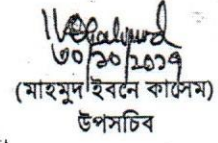 ৩০/১০/২০১৭
(মাহমুদ ইবনে কাসেম)
উপসচিব